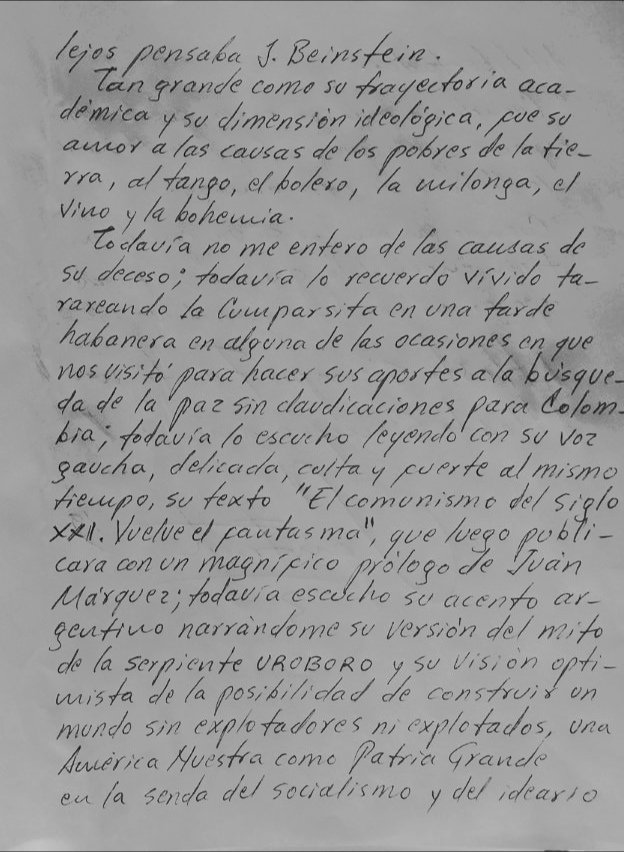 lejos pensaba J. Beinstein.
Tan grande como su trayectoria aca-
démica y su dimensión ideológica, fue su
amor a las causas de los pobres de la tie-
rra, al tango, el bolero, la milonga, el
vino y la bohemia.
Todavía no me entero de las causas de
su deceso; todavía lo recuerdo vívido ta-
rareando la Cumparsita en una tarde
habanera en alguna de las ocasiones en que
nos visitó para hacer sus aportes a la búsque-
da de la paz sin claudicaciones para Colom-
bia; todavía lo escucho leyendo con su voz
gaucha, delicada, culta y fuerte al mismo
tiempo, su texto "El comunismo del siglo
XXI. Vuelve el fantasma", que luego publi-
cara con un magnífico prólogo de Iván
Márquez; todavía escucho su acento ar-
gentino narrándome su versión del mito
de la serpiente UROBORO y su visión opti-
mista de la posibilidad de construir un
mundo sin explotadores ni explotados, una
América Nuestra como Patria Grande
en la senda del socialismo y del ideario